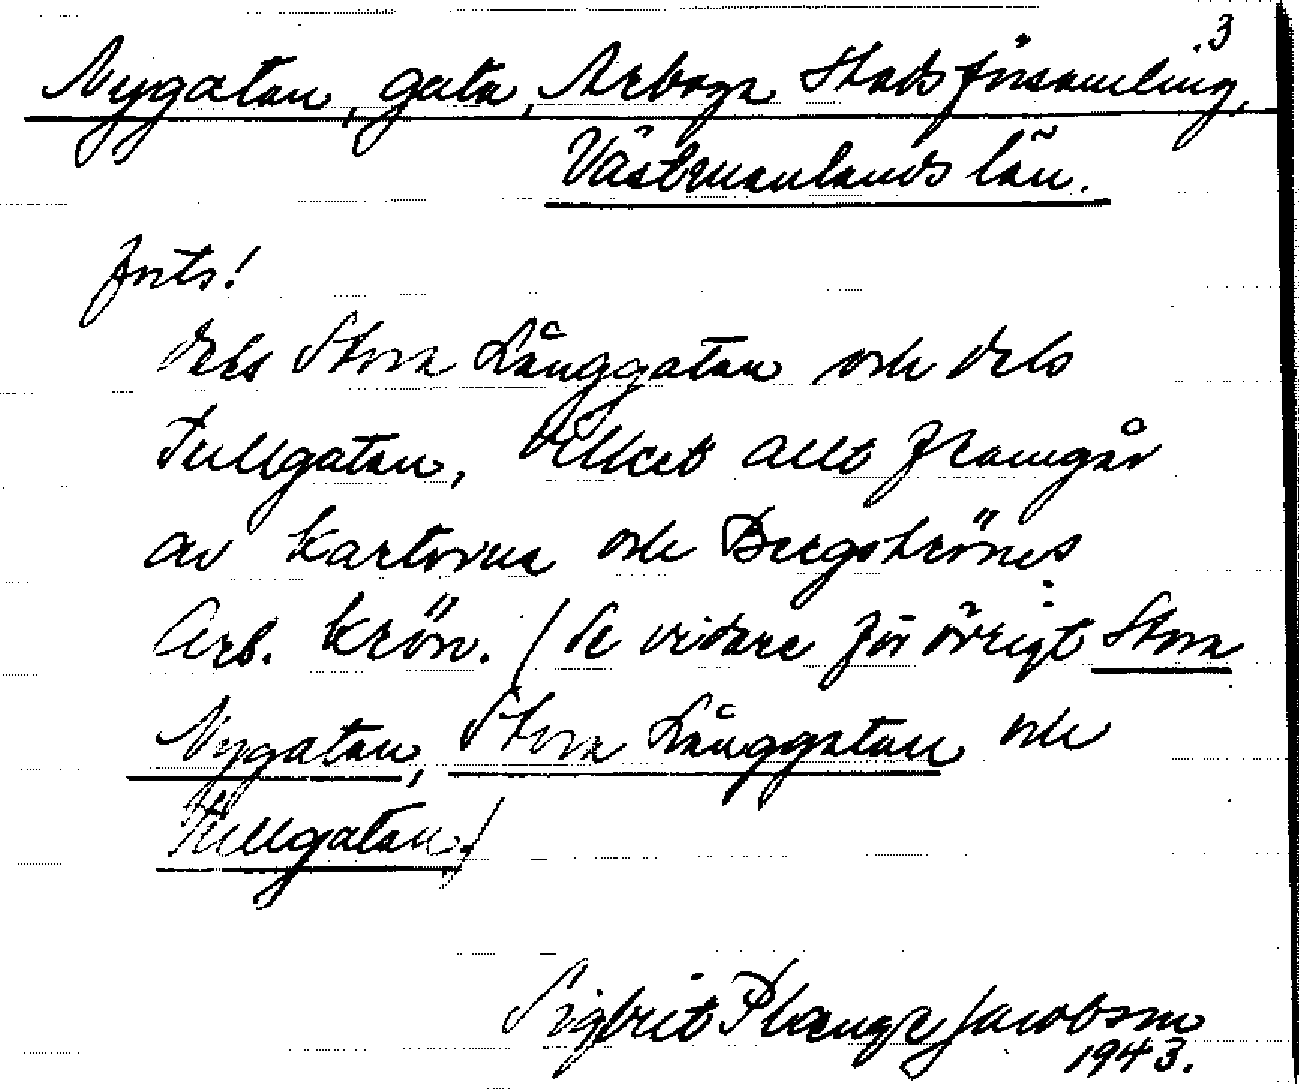 .3
Nygatan, gata, Arboga Stadsförsamling,
Västmanlands län.
forts!
dels Stora Långgatan och dels
Tullgatan, vilket allt framgår
av kartorna och Bergströms
Arb. krön. / Se vidare för övrigt Stora
Nygatan, Stora Långgatan och
Tullgatan./
Sigbrit Plænge Jacobson
1943.